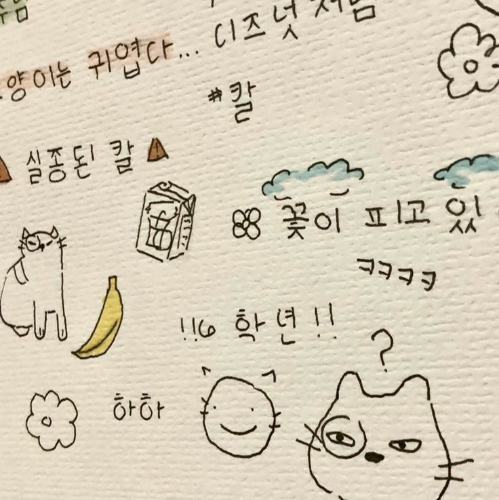 양이는 귀엽다...
디즈넛 처럼
#칼
실종된 칼
꽃이 피고 있
ㅋㅋㅋㅋ
!!6 학년!!
?
하하